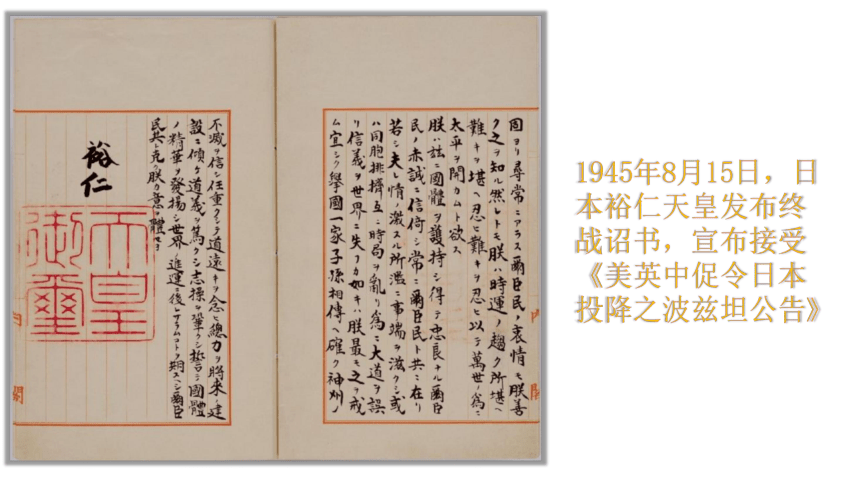 固ヨリ尋常ニアラス爾臣民ノ衷情モ朕善
ク之ヲ知ル然レトモ朕ハ時運ノ趨ク所堪ヘ
難キヲ堪ヘ忍ヒ難キヲ忍ヒ以テ萬世ノ爲ニ
太平ヲ開カムト欲ス
朕ハ茲ニ國體ヲ護持シ得テ忠良ナル爾臣
民ノ赤誠ニ信倚シ常ニ爾臣民ト共ニ在リ
若シ夫レ情ノ激スル所濫ニ事端ヲ滋クシ或
ハ同胞排擠互ニ時局ヲ亂リ爲ニ大道ヲ誤
リ信義ヲ世界ニ失フカ如キハ朕最モ之ヲ戒
ム宜シク擧國一家子孫相傳ヘ確ク神州ノ
不滅ヲ信シ任重クシテ道遠キヲ念ヒ總力ヲ將來ノ建
設ニ傾ケ道義ヲ篤クシ志操ヲ鞏クシ誓テ國體
ノ精華ヲ發揚シ世界ノ進運ニ後レサラムコトヲ期スヘシ爾臣
民其レ克ク朕カ意ヲ體セヨ
裕仁
天皇
御璽
內
閣
1945年8月15日，日
本裕仁天皇发布终
战诏书，宣布接受
《美英中促令日本
投降之波兹坦公告》